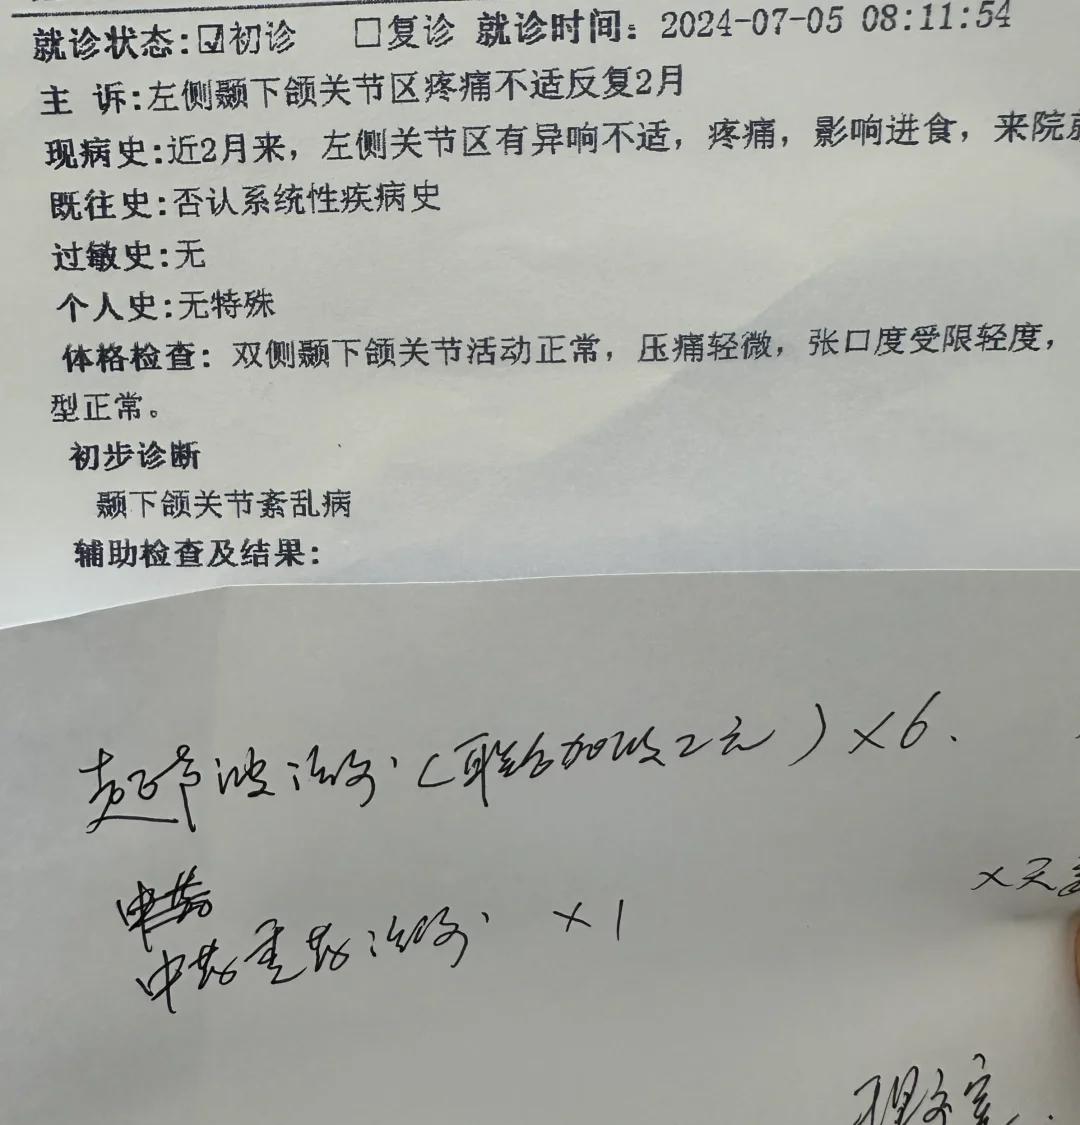 就诊状态:☑初诊 □复诊 就诊时间: 2024-07-05 08:11:54
主 诉:左侧颞下颌关节区疼痛不适反复2月
现病史:近2月来，左侧关节区有异响不适，疼痛，影响进食，来院
既往史:否认系统性疾病史
过敏史:无
个人史:无特殊
体格检查: 双侧颞下颌关节活动正常，压痛轻微，张口度受限轻度，
型正常。
初步诊断
颞下颌关节紊乱病
辅助检查及结果:
超声波治疗(联合加收2元)×6.
中药
中药熏药治疗 ×1